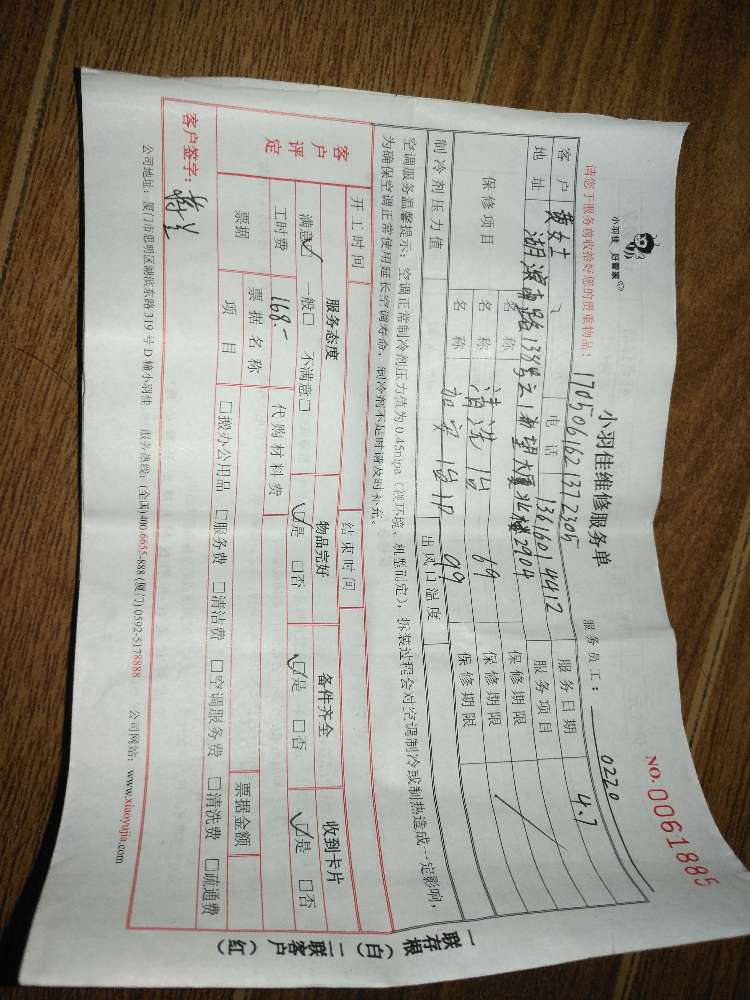 小羽佳 好管家
小羽佳维修服务单
NO.0061885
请您于服务前收拾好您的贵重物品！
17050616213723​05
服务员工：0220
客户 黄女士 电话 13616014412 服务日期 4.7
地址 湖滨南路138号之1希望大厦北楼2904 服务项目
保修项目 名称 保修期限
名称 清洗1台 69 保修期限
名称 加买1台1P 99 保修期限
制冷剂压力值 出风口温度
空调服务温馨提示：空调正常制冷剂压力值为0.45mpa（视环境、机型而定），拆装过程会对空调制冷或制热造成一定影响，
为确保空调正常使用延长空调寿命，制冷剂不足时请及时补充。
开工时间 结束时间
客户评定 服务态度 物品完好 备件齐全 收到卡片
满意☑ 一般□ 不满意□ ☑是 □否 ☑是 □否 ☑是 □否
工时费 168.- 代购材料费
票据 票据名称 票据金额
项目 □搬办公用品 □服务费 □清洁费 □空调服务费 □清洗费 □疏通费
客户签字：
公司地址：厦门市思明区湖滨东路319号D幢小羽佳 服务热线：(全国)400-6655-888 (厦门) 0592-5178888 公司网站：www.xiaoyujia.com
一联存根（白）二联客户（红）